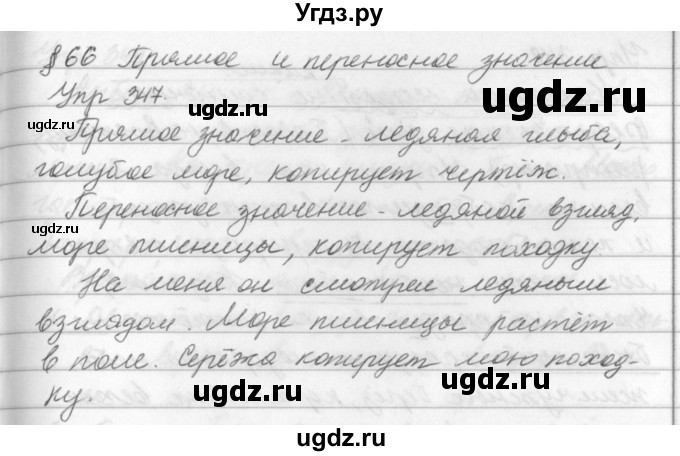 Угдз.ру
§66 Прямое и переносное значение
Упр 347.
ugdz.ru
ugdz.ru
ugdz.ru
Прямое значение - ледяная глыба,
голубое море, копирует чертёж.
ugdz.ru
Переносное значение - ледяной взгляд,
море пшеницы, копирует походку
ugdz.ru
На меня он смотрел ледяным
взглядом. Море пшеницы растёт
в поле. Серёжа копирует мою поход-
ку.
ugdz.ru
ugdz.ru
ugdz.ru